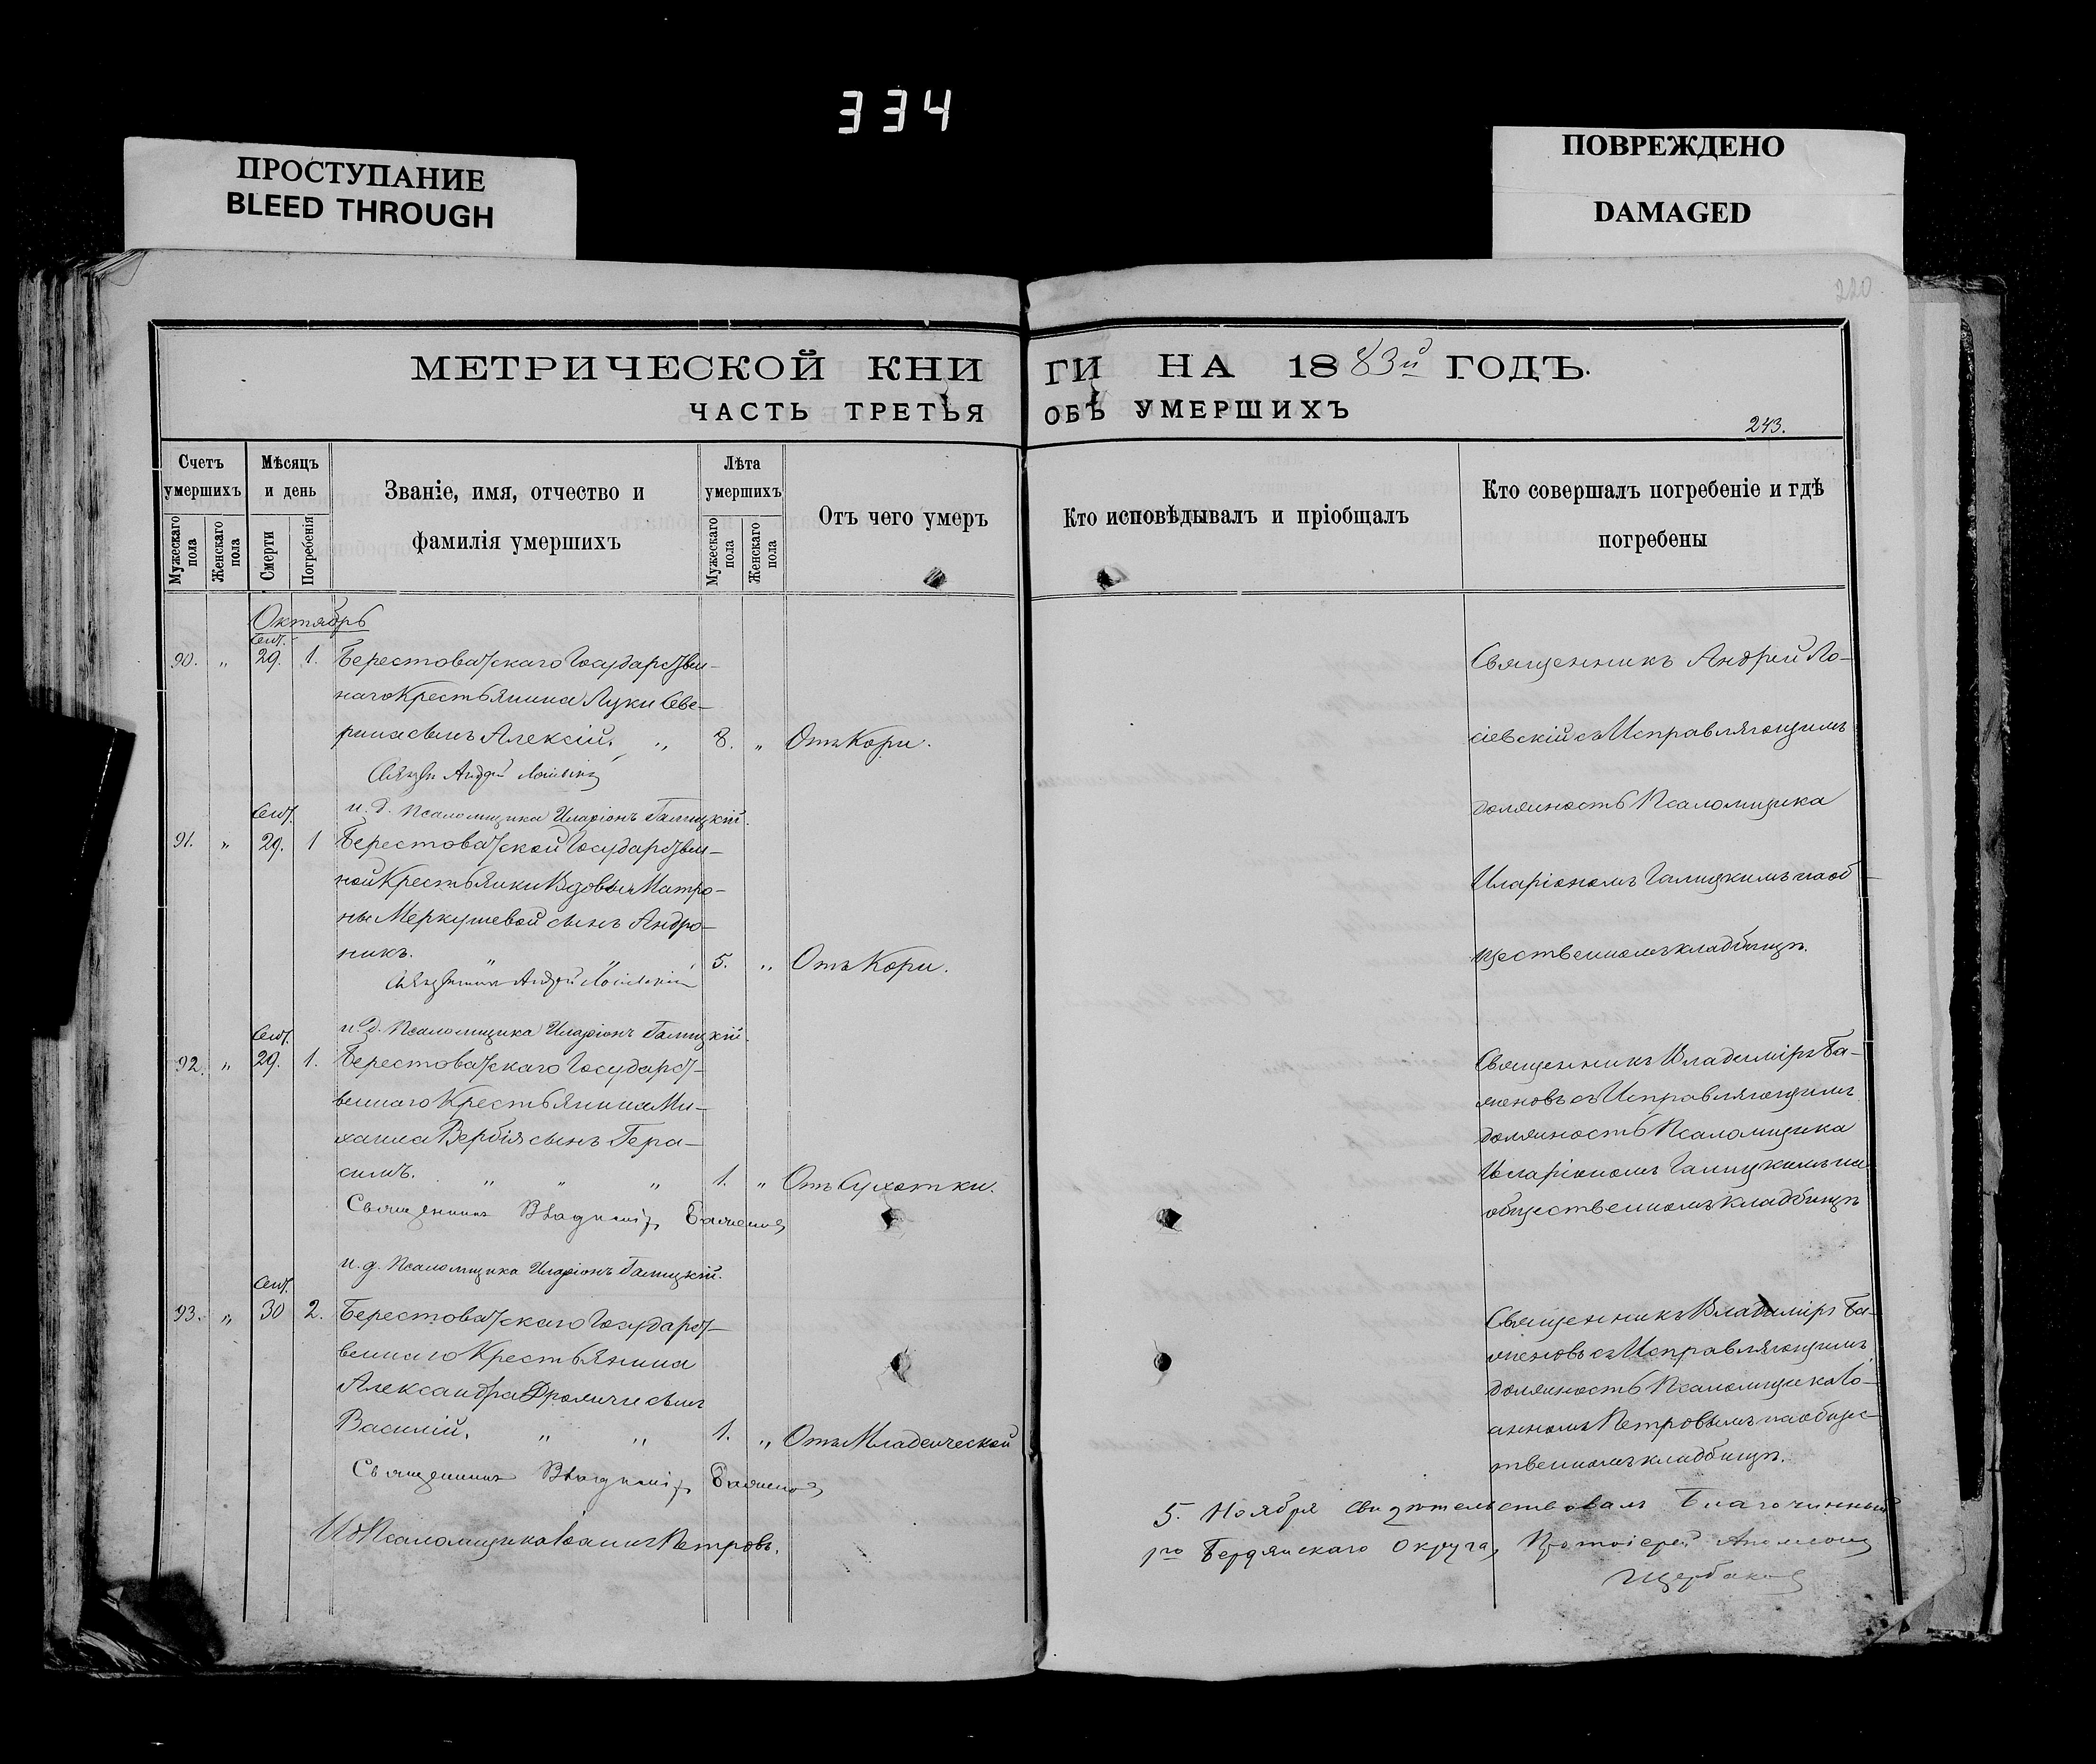 334
ПРОСТУПАНИЕ
BLEED THROUGH
ПОВРЕЖДЕНО
DAMAGED
220.
МЕТРИЧЕСКОЙ КНИ ГИ НА 1883й ГОДЪ.
ЧАСТЬ ТРЕТЬЯ ОБЪ УМЕРШИХЪ
243.
Счетъ умершихъ
Мужескаго пола
Женскаго пола
Мѣсяцъ и день
Смерти
Погребенія
Званіе, имя, отчество и
фамилія умершихъ
Лѣта умершихъ
Мужескаго пола
Женскаго пола
Отъ чего умеръ
Кто исповѣдывалъ и пріобщалъ
Кто совершалъ погребеніе и гдѣ
погребены
Октябрь
Сент.
90. " 29. 1. Берестоватскаго Государствен-
наго Крестьянина Луки Севе-
рина сынъ Алексій. " 8. " Отъ Кори.
Андрей
и. д. Псаломщика Иларіонъ Галицкій.
Священникъ Андрей Ло-
сіевскій съ Исправляющимъ
должность Псаломщика
Иларіономъ Галицкимъ на об-
щественномъ кладбищѣ.
Сент.
91. " 29. 1 Берестоватской Государствен-
ной Крестьянки Вдовы Матро-
ны Меркушевой сынъ Андро-
никъ. " " 5. " Отъ Кори.
Андрей
и. д. Псаломщика Иларіонъ Галицкій.
Сент.
92. " 29. 1. Берестоватскаго Государст-
веннаго Крестьянина Ми-
хаила Вербія сынъ Гера-
симъ. " " " 1. " Отъ Сухотки.
Священникъ Владиміръ Баженовъ
и. д. Псаломщика Иларіонъ Галицкій.
Священникъ Владиміръ Ба-
женовъ съ Исправляющимъ
должность Псаломщика
Иларіономъ Галицкимъ на
общественномъ кладбищѣ
Сент.
93. " 30 2. Берестоватскаго Государст-
веннаго Крестьянина
Александра сынъ
Василій. " " 1. " Отъ Младенческой
Священникъ Владиміръ Баженовъ
Ид Псаломщика Іоаннъ Петровъ.
Священникъ Владиміръ Ба-
женовъ съ Исправляющимъ
должность Псаломщика Іо-
анномъ Петровымъ на общес-
твенномъ кладбищѣ.
5. Ноября свидѣтельствовалъ Благочинный
1го Бердянскаго Округа, Протоіерей
Щербаковъ